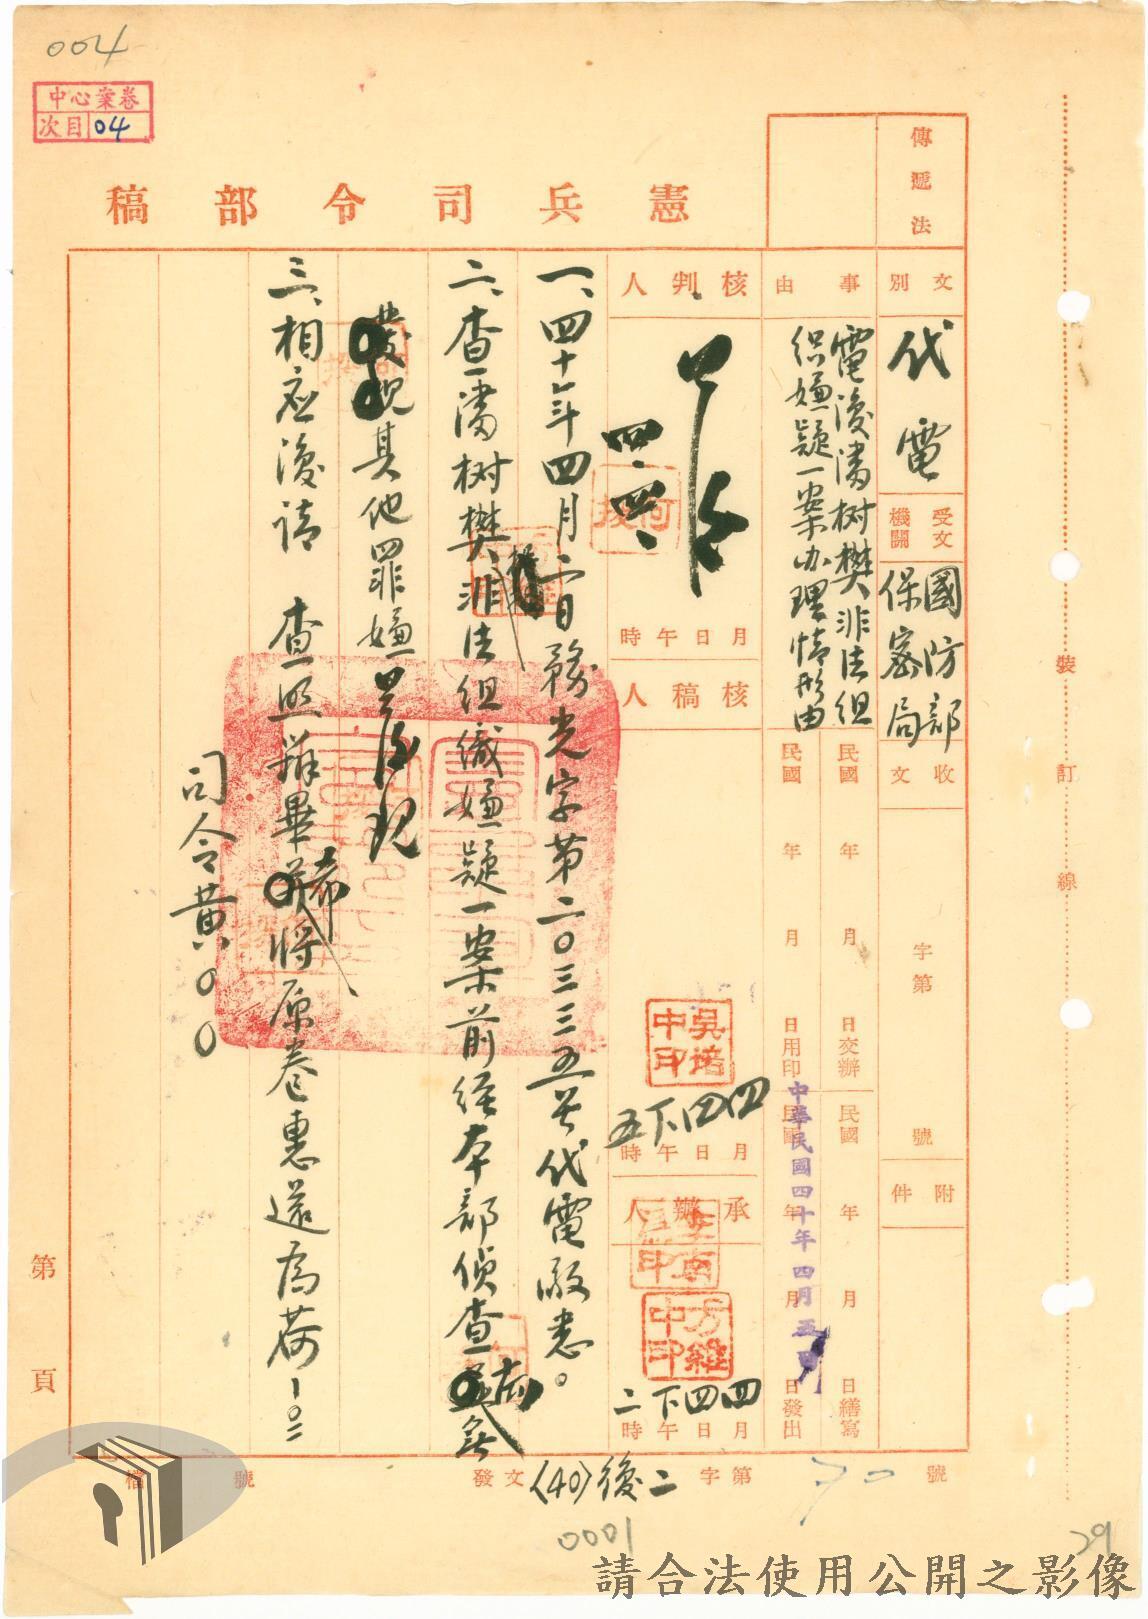 004
中心案卷
次目 04
憲兵司令部稿
傳遞法
文別
代電
受文機關
國防部
保密局
收文
字第
號
附件
事由
電復潘树樊非法組
织嫌疑一案办理情形由
民國 年 月 日交辦
民國 年 月 日繕寫
民國 年 月 日用印
民國 年 月 日發出
中華民國四十年四月五日
核判人
四、四、
月日午時
核稿人
吳培
中印
四四下五
月日午時
承辦人
李南
中印
方維
中印
四四下二
月日午時
一、四十年四月二日務光字第二〇三三五號代電敬悉。
二、查潘树樊非法組織嫌疑一案前經本部偵查
其他罪嫌
三、相应復請 查照辦畢希將原卷惠還為荷
司令黃〇〇
裝訂線
第 頁
檔 號
發文
(40)後二
字第
70
號
0001
29
請合法使用公開之影像